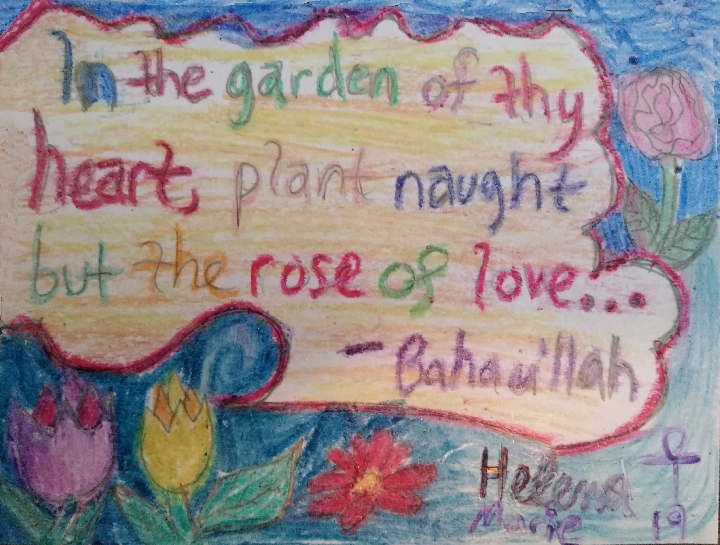 In the garden of thy
heart, plant naught
but the rose of love...
- Baha'u'llah
Helena
Marie 19